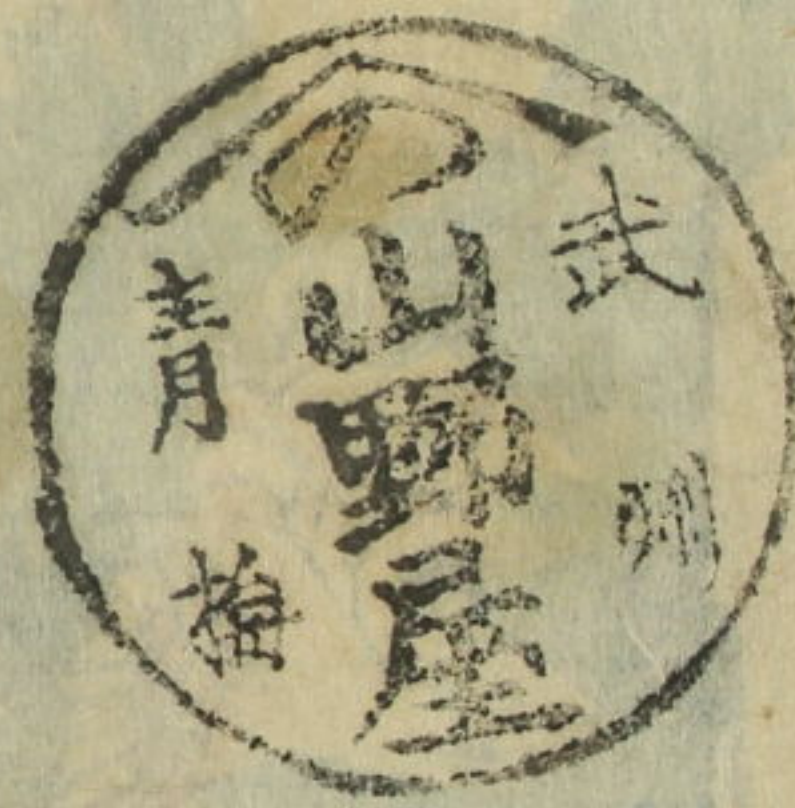 武州
山野屋
青梅